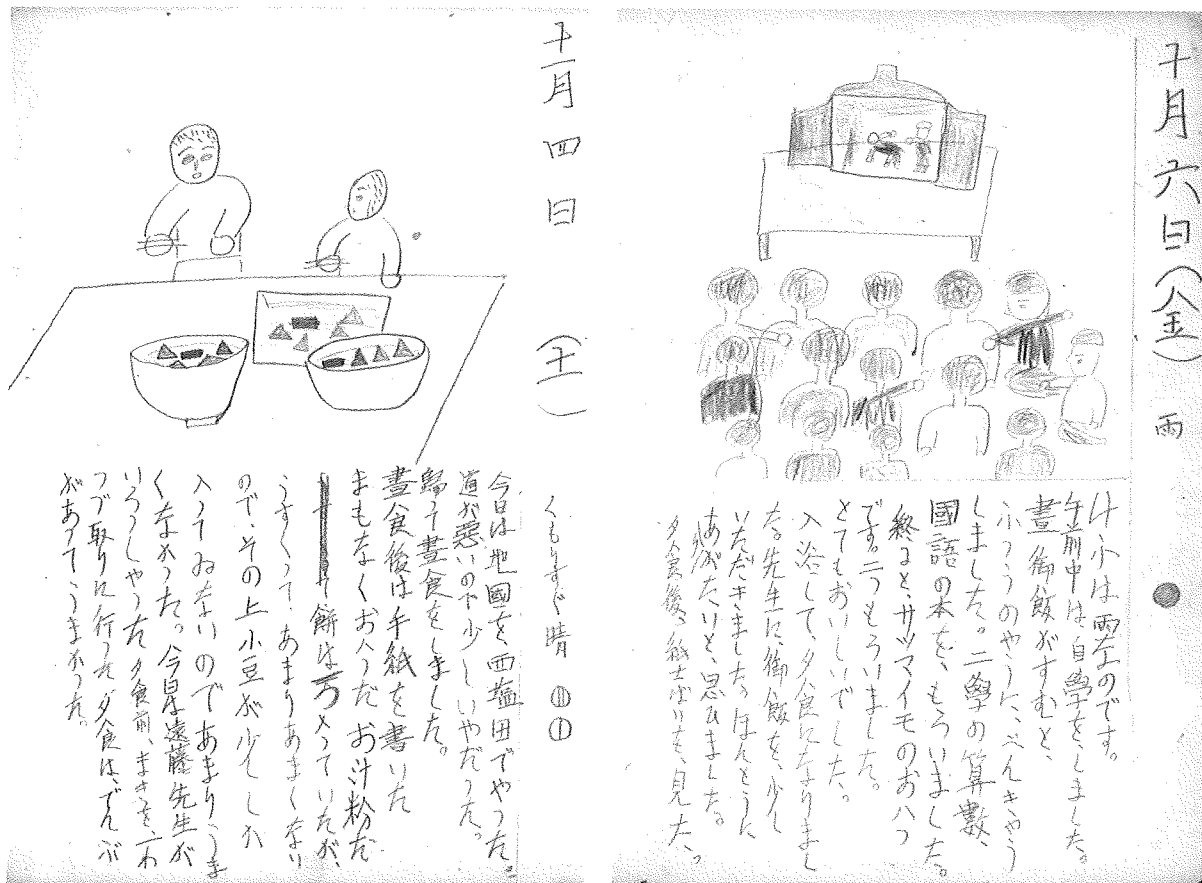 十月六日(金) 雨
は雨空のです。
午前中は自學を、しました。
晝御飯がすむと、
ふつうのやうに、べんきやう
しました。二學の算數、
國語の本を、もらいました。
終ると、サツマイモのおやつ
です。二つもらいました。
とてもおいしいでした。
入浴して、夕食になりまし
た。先生に、御飯を、少し
いただきました。ほんとうに
ありがたいと、思ひました。
夕食後、紙しばいを、見た。
十一月四日 (土)
くもりすぐ晴
今日は地國を、西塩田でやつた。
道が悪いので少しいやだつた。
歸つて晝食をしました。
晝食後は手紙を書いた
まもなくおやつだ お汁粉だ
餅は入つていたが、
うすくつて、あまりあまくない
ので、その上小豆が少ししか
入つてゐないのであまりうま
くなかつた。今日は遠藤先生が
いらつしやつた 夕食前、まきを、二わ
づつ取りに行つた 夕食は、でんぶ
があつて、うまかつた。